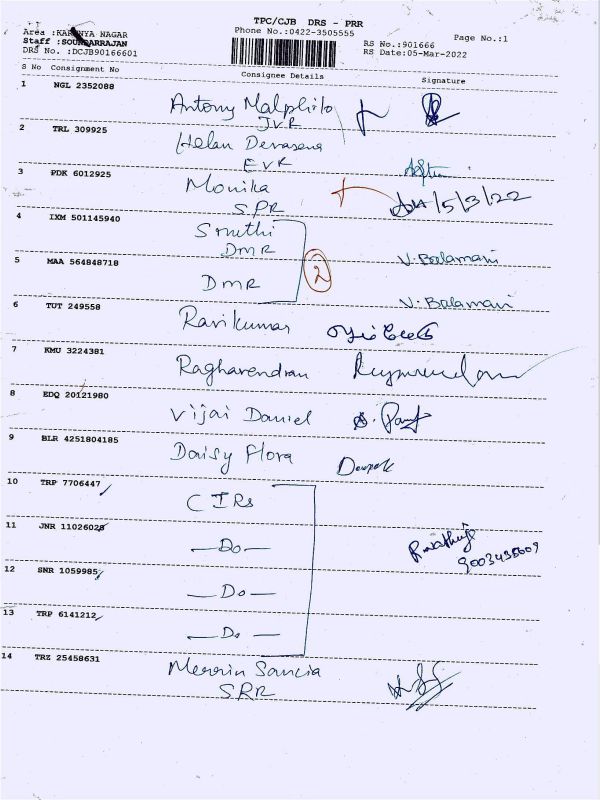 TPC/CJB DRS - PRR
Area :KARUNYA NAGAR
Phone No.:0422-3505555
Page No.:1
Staff :SOUNDARRAJAN
RS No.:901666
DRS No. :DCJB90166601
RS Date:05-Mar-2022
S No Consignment No Consignee Details Signature
1 NGL 2352088
Antony
JVR
2 TRL 309925
Helan Devasena
EVR
3 PDK 6012925
Monika
SPR
/5/3/22
4 IXM 501145940
Sruthi
DMR
V. Balamani
5 MAA 564848718
DMR
2
V. Balamani
6 TUT 249558
Ravikumar
7 KMU 3224381
Raghavendran
8 EDQ 20121980
Vijai Daniel
9 BLR 4251804185
Daisy Flora
10 TRP 7706447
CIRs
11 JNR 11026028
— Do —
9003435609
12 SNR 1059985
— Do —
13 TRP 6141212
— Do —
14 TRZ 25458631
Merrin Sancia
SRR